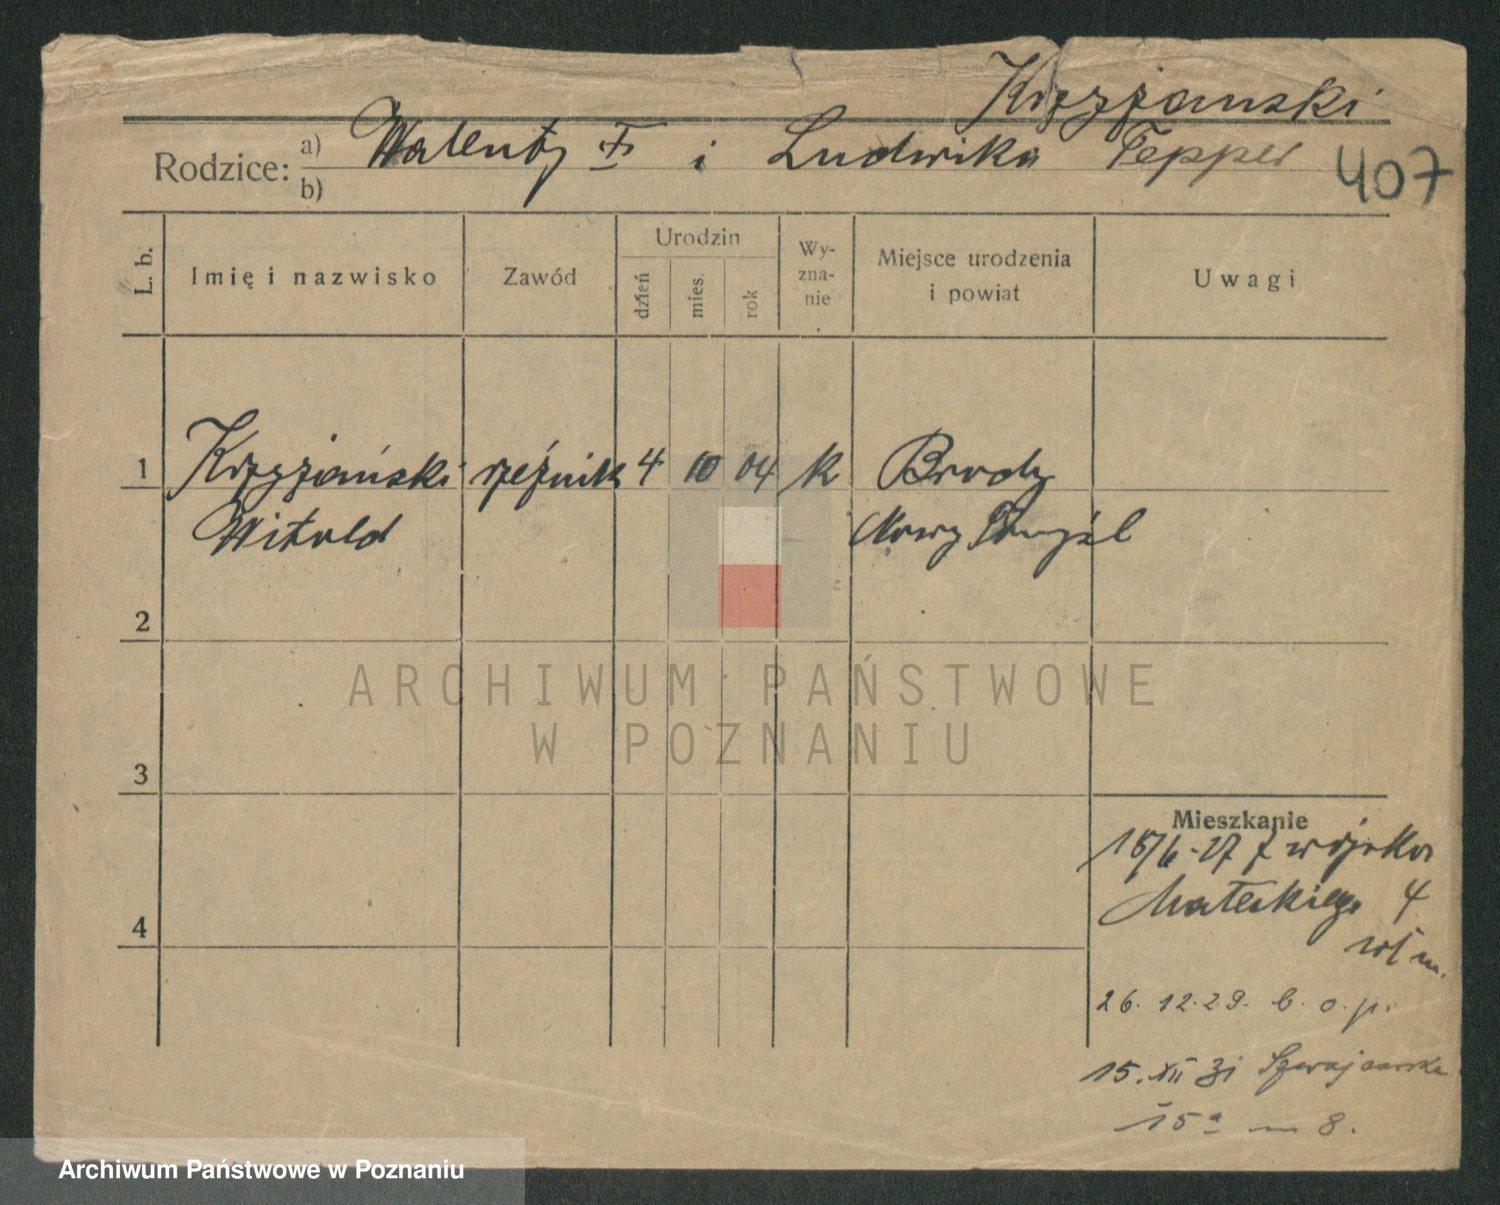 Krzyżanski
Rodzice: a) Walenty † i Ludwika Tepper
b)
407
L. b.
Imię i nazwisko
Zawód
Urodzin
dzień
mies.
rok
Wy-
zna-
nie
Miejsce urodzenia
i powiat
Uwagi
1 Krzyżański rzeźnik 4 10 04 k Brody
Witold Nowy Tomyśl
2
ARCHIWUM PAŃSTWOWE
W POZNANIU
3
4
Mieszkanie
18/6-27 z wojska
Mateckiego 4
26.12.29. b. o. p.
15. XII 31 Szwajcarska
15a m 8.
Archiwum Państwowe w Poznaniu